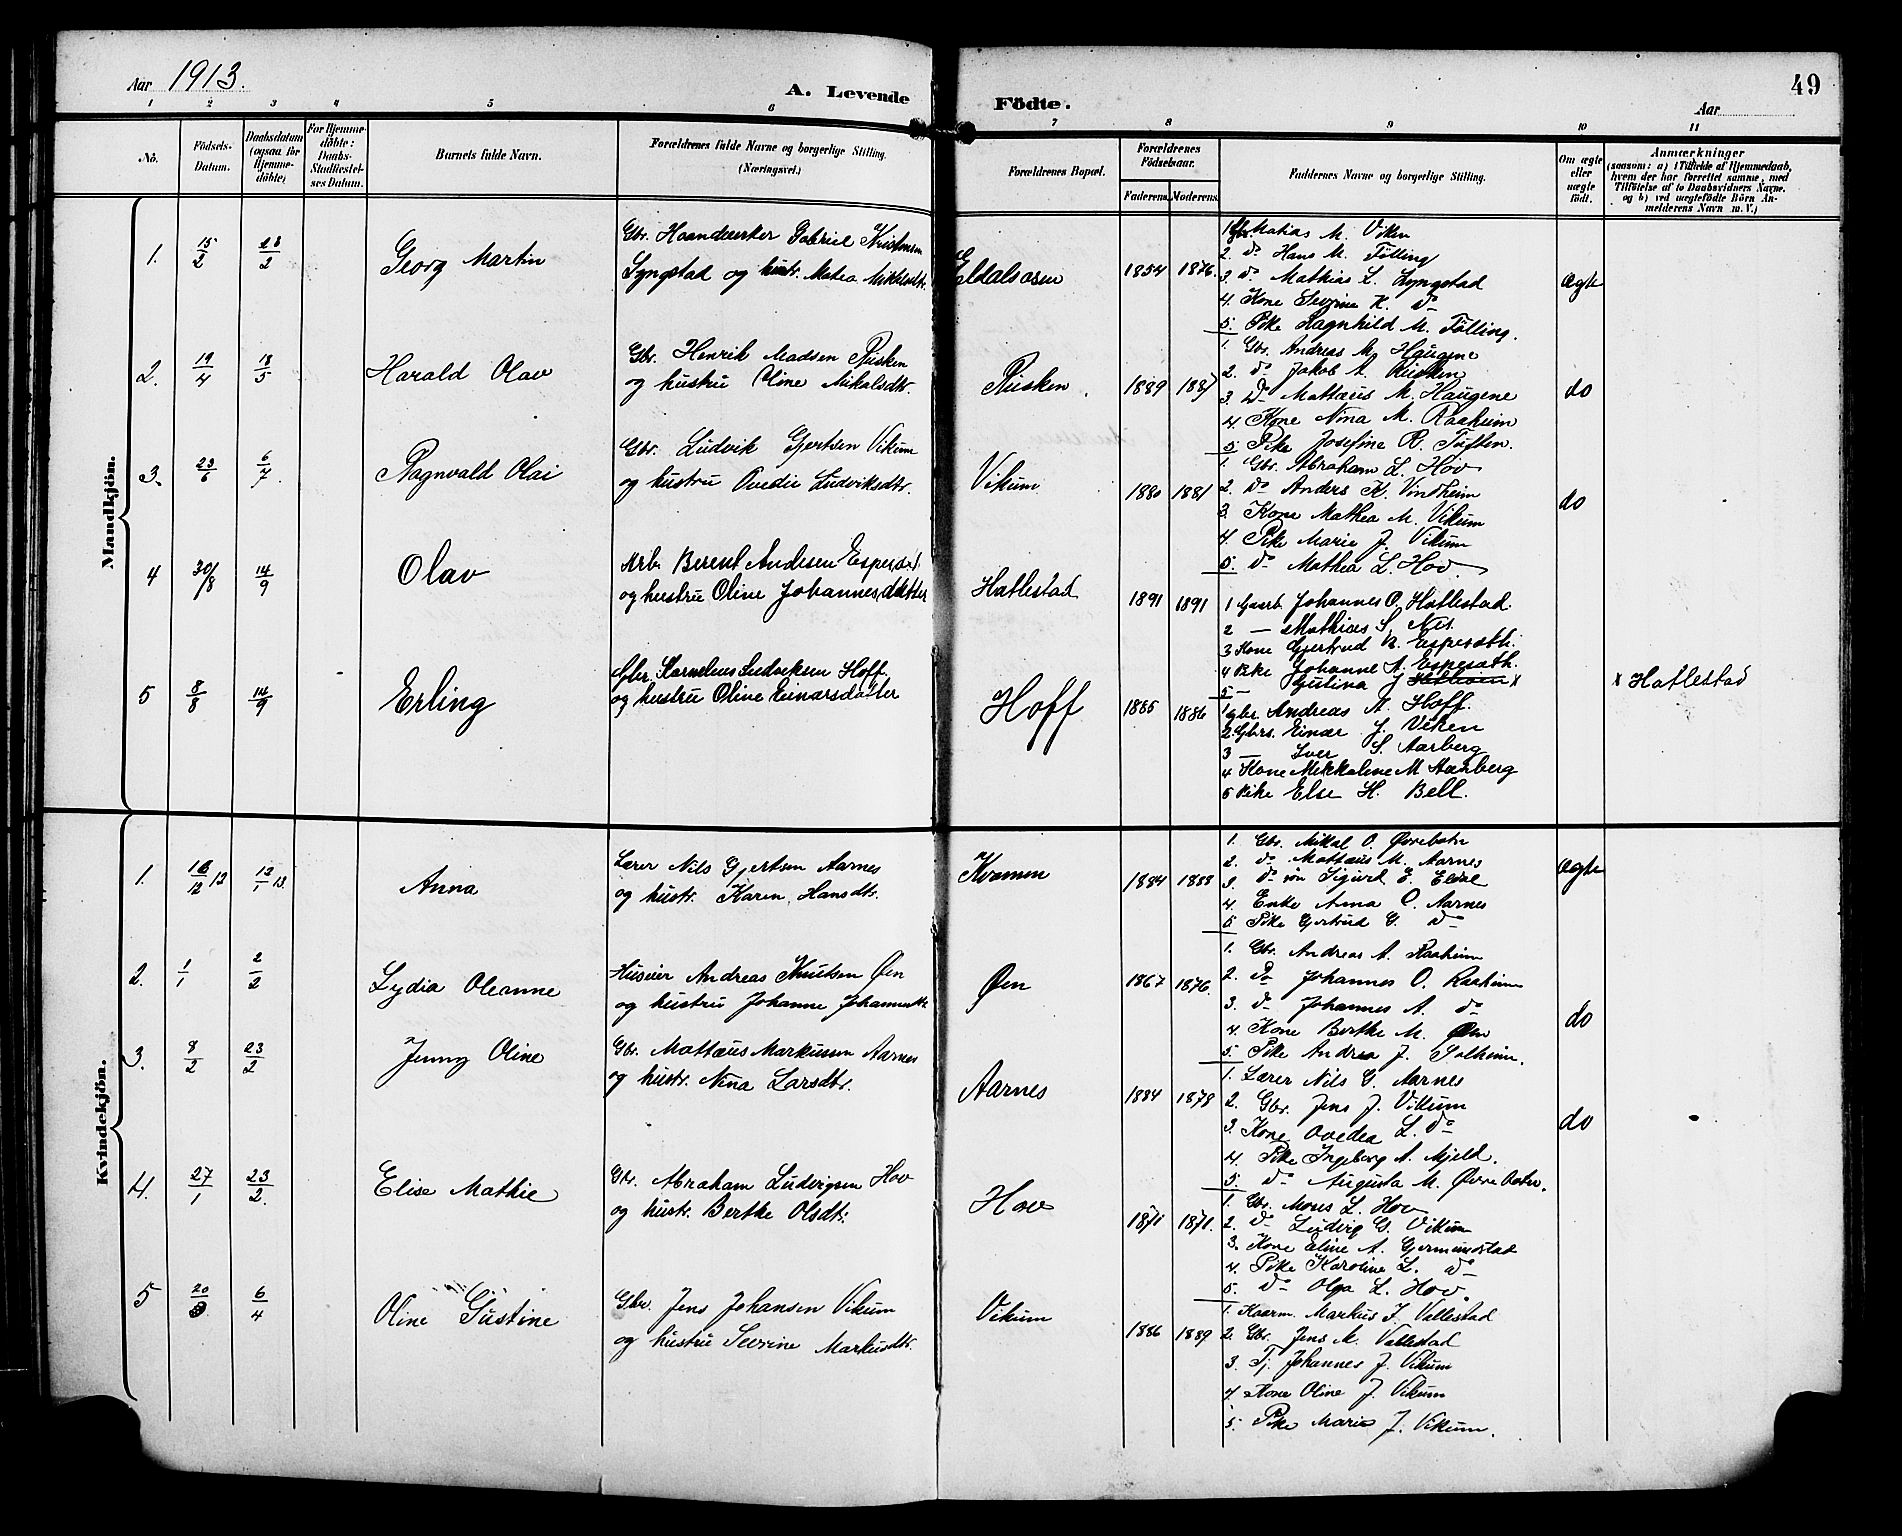 Aar 1913.
A. Levende
Födte.
49
Aar
1 2 3 4 5 6 7 8 9 10 11
No.
Födsels-
Datum.
Daabsdatum
(ogsaa for
Hjemme-
döbte)
For Hjemme-
döbte:
Daabs-
Stadfæstel-
ses Datum.
Barnets fulde Navn.
Forældrenes fulde Navne og borgerlige Stilling.
(Næringsvei.)
Forældrenes Bopæl.
Forældrenes
Födselsaar.
Faderens. Moderens.
Faddernes Navne og borgerlige Stilling.
Om ægte
eller
uægte
født.
Anmærkninger
(saasom: a) i Tilfælde af Hjemmedaab,
hvem der har forrettet samme, med
Tilföielse af to Daabsvidners Navne.
og b) ved uægtefödte Börn An-
melderens Navn m. V.)
Mandkjön.
1. 15/2 23/2 Georg Martin
Gbr. Haandverker Gabriel Kristensen
Lyngstad og hustr. Matea Mikkelsdtr.
Eldalsosen 1854 1876. ægte
1. Gbr. Matias M. Viken
2. do Hans M. Tølling
3. do Mathias L. Lyngstad
4. Kone Severine K. do
5. Pike Lagnhild M. Tølling.
2. 19/4 18/5 Harald Olav
Gbr. Henrik Madsen Rusken
og hustru Oline Mikalsdtr.
Rusken 1889 1887 do
1. Gbr. Andreas M. Haugene
2. do Jakob A. Rusken
3. do Mattæus M. Haugene
4. Kone Nina M. Raaheim
5. Pike Josefine R. Tuften.
3. 23/6 6/7 Ragnvald Olai
Gbr. Ludvik Gjertsen Vikum
og hustru Ovedie Ludviksdtr.
Vikum 1880 1881 do
1. Gbr. Abraham L. Hov
2. do Anders K. Vindheim
3. Kone Mathea M. Vikum
4. Pike Marie J. Vikum
5. do Mathea L. Hov.
4 30/8 14/9 Olav
Arb. Berent Andersen
og hustru Oline Johannesdatter
Hatlestad 1891 1891
1 Gaarb. Johannes O. Hatlestad.
2 — Mathias S. Nes.
3 Kone Gjertrud
4 Pike Johanne A.
5 — Gustina J x
5 8/8 14/9 Erling
Gbr. Kornelius Ludviksen Hoff.
og hustru Oline Einarsdatter
Hoff 1885 1886
x Hatlestad
1 gbr. Andreas A. Hoff.
2 Gbrs. Einar J. Viken
3 — Iver S. Aarberg
4 Kone Mikkaline M Aarberg
5 Pike Else H. Bell.
Kvindekjön.
1. 16/12 12 12/1 13. Anna
Lærer Nils Gjertsen Aarnes
og hustr. Karen Hansdtr.
Kvamen 1884 1888 ægte
1. Gbr. Mikal O. Øvrebotn
2. do Mattæus M. Aarnes
3. do søn Sigurd E. Eldal
4. Enke Anna O. Aarnes
5. Pike Gjertrud G. do
2. 1/1 2/2 Lydia Oleanne
Huseier Andreas Knutsen Øen
og hustru Johanne Johannesdtr.
Øen 1867 1876. do
1. Gbr. Andreas A. Raaheim
2. do Johannes O. Raaheim
3. do Johannes A. do
4. Kone Berthe M. Øen
5. Pike Andrea J. Solheim.
3. 8/2 23/2 Jenny Oline
Gbr. Mattæus Markussen Aarnes
og hustr. Nina Larsdtr.
Aarnes 1884 1878 do
1. Lærer Nils G. Aarnes
2. Gbr. Jens J. Vikum
3. Kone Ovedea L. do
4. Pike Ingeborg A. Mjeld.
5. do Augusta M. Øvrebotn.
4. 27/1 23/2. Elise Mathie
Gbr. Abraham Ludvigsen Hov
og hustr. Berthe Olsdtr.
Hov 1871 1871.
1. Gbr. Mons L. Hov
2. do Ludvig G. Vikum
3. Kone Eline A. Gjermundstad
4. Pike Karoline L. do
5. do Olga L. Hov.
5 20/3 6/4 Oline Gustine
Gbr. Jens Johansen Vikum
og hustru Severine Markusdtr.
Vikum 1886 1889
1. Kaarm. Markus J. Vallestad
2. Gbr. Jens M. Vallestad
3. Tj. Johannes J. Vikum
4. Kone Oline J. Vikum
5. Pike Marie J. Vikum.